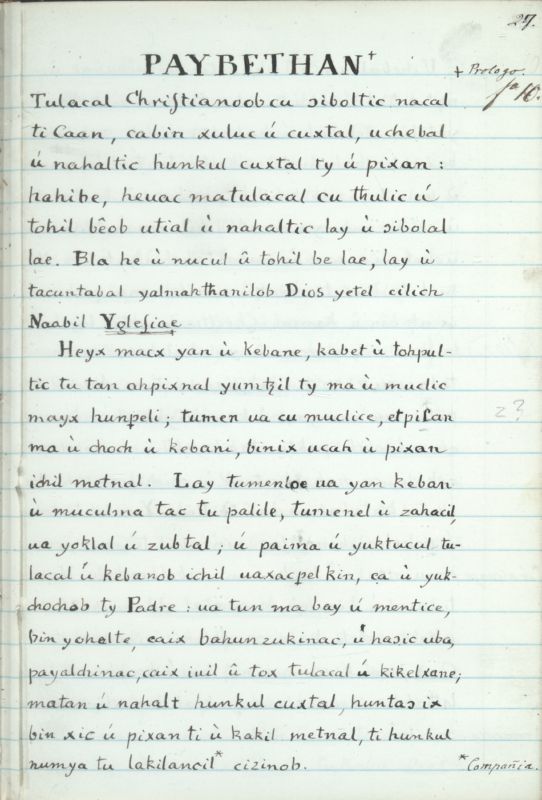 27.
PAYBETHAN⁺
+ Prologo.
fª 10.
Tulacal Chriſtianoob cu ɔiboltic nacal
ti Caan, cabin xuluc ú cuxtal, uchebal
ú nahaltic hunkul cuxtal ty ú pixan:
hahibe, heuac matulacal cu thulic ú
tohil bêob utial ù nahaltic lay ù ɔibolal
lae. Bla he ù nucul û tohil be lae, lay ù
tacuntabal yalmahthanilob Dios yetel cilich
Naabil Ygleſiae
Heyx macx yan ù Kebane, kabet ù tohpul-
tic tu tan ahpixnal yumtzil ty ma ù muclic
mayx hunppeli; tumen ua cu muclice, etpiſan
z?
ma ù choch ù kebani, binix ucah ù pixan
ichil metnal. Lay tumenloe ua yan keban
ù muculma tac tu palile, tumenel ù zahacil,
ua yoklal ú zubtal; ú paima ú yuktucul tu-
lacal ú kebanob ichil uaxacppel kin, ca ù yuk-
chochob ty Padre: ua tun ma bay ú mentice,
bin yohelte, caix bahunzukinac, ú hasic uba,
payalchinac, caix iuil û tox tulacal ú kikelxane;
matan ú nahalt hunkul cuxtal, huntas ix
bin xic ú pixan ti ù kakil metnal, ti hunkul
numya tu lakilancil* cizinob.
*Compañia.